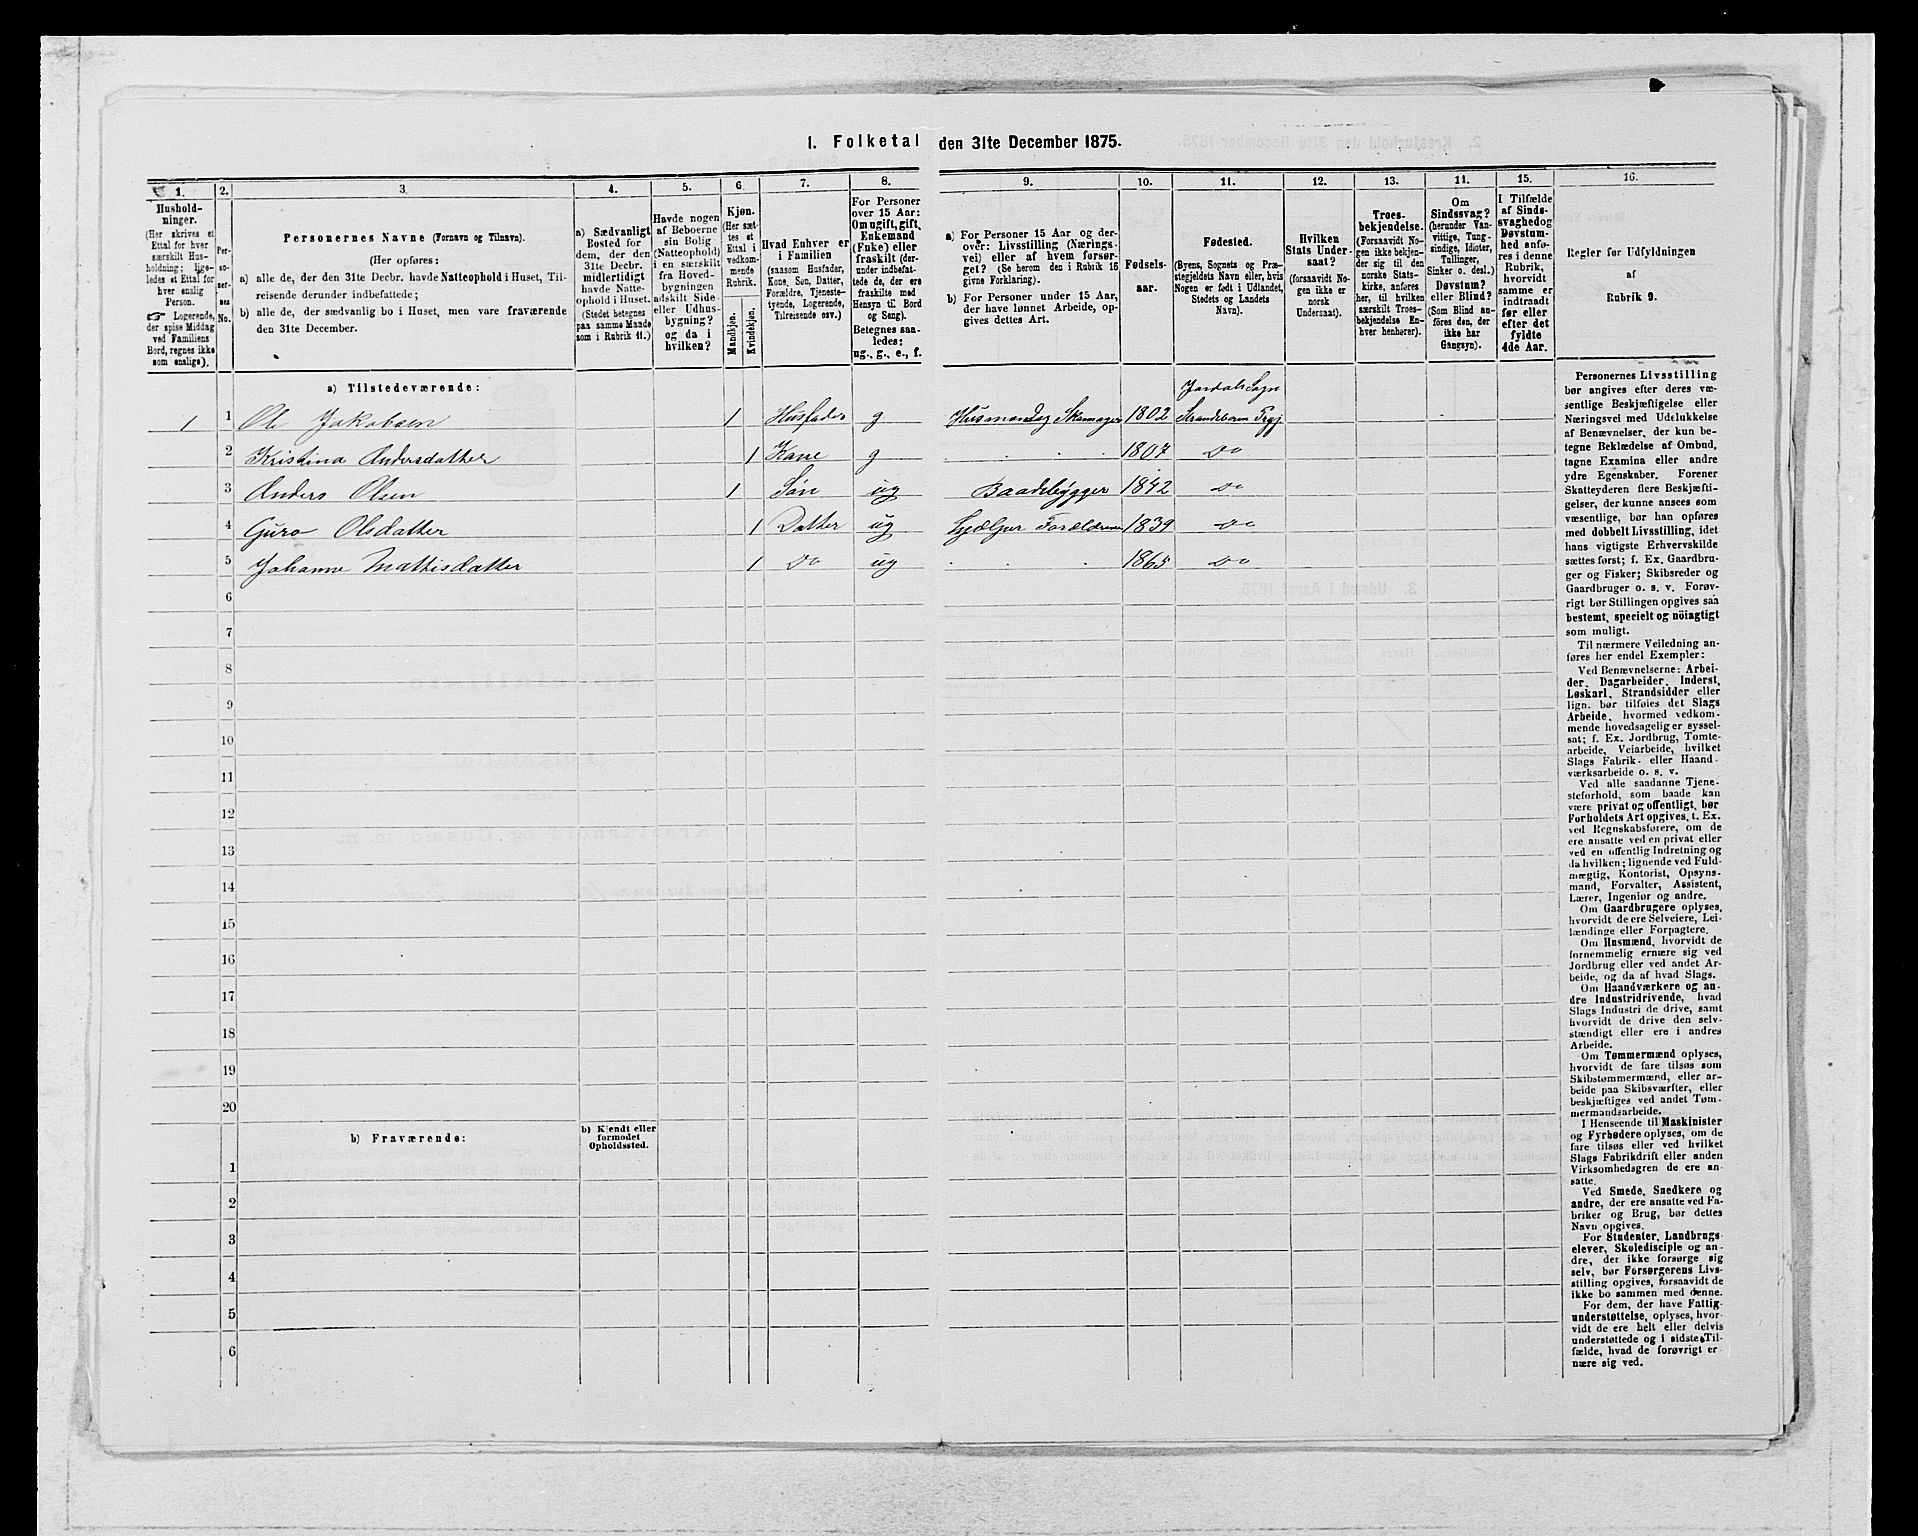 1. Folketal den 31te December 1875.
1. 2. 3. 4. 5. 6. 7. 8. 9. 10. 11. 12. 13. 14. 15. 16.
Hushold-
ninger.
(Her skrives et
Ettal for hver
særskilt Hus-
holdning; lige-
ledes et Ettal for
hver enslig
Person.
☞ Logerende,
der spise Middag
ved Familiens
Bord, regnes ikke
som enslige).
Per-
so-
ner-
nes
No.
Personernes Navne (Fornavn og Tilnavn).
(Her opføres:
a) alle de, der den 31te Decbr. havde Natteophold i Huset, Til-
reisende derunder indbefattede;
b) alle de, der sædvanlig bo i Huset, men vare fraværende
den 31te December.
a) Sædvanligt
Bosted for
dem, der den
31te Decbr.
midlertidigt
havde Natte-
ophold i Huset.
(Stedet betegnes
paa samme Maade
som i Rubrik 11.)
Havde nogen
af Beboerne
sin Bolig
(Natteophold)
i en særskilt
fra Hoved-
bygningen
adskilt Side-
eller Udhus-
bygning?
og da i
hvilken?
Kjøn.
(Her sæt-
tes et
Ettal i
vedkom-
mende
Rubrik.
Mandkjøn.
Kvindekjøn.
Hvad Enhver er
i Familien
(saasom Husfader,
Kone, Søn, Datter,
Forældre, Tjeneste-
tyende, Logerende,
Tilreisende osv.)
For Personer
over 15 Aar:
Om ugift, gift,
Enkemand
(Enke) eller
fraskilt (der-
under indbefat-
tede de, der ere
fraskilte med
Hensyn til Bord
og Seng).
Betegnes saa-
ledes:
ug., g., e., f.
a) For Personer 15 Aar og der-
over: Livsstilling (Nærings-
vei) eller af hvem forsør-
get? (Se herom den i Rubrik 16
givne Forklaring).
b) For Personer under 15 Aar,
der have lønnet Arbeide, op-
gives dettes Art.
Fødsels-
aar.
Fødested.
(Byens, Sognets og Præ-
stegjeldets Navn eller, hvis
Nogen er født i Udlandet,
Stedets og Landets
Navn).
Hvilken
Stats Under-
saat?
(forsaavidt No-
gen ikke er
norsk
Undersaat).
Troes-
bekjendelse.
(Forsaavidt No-
gen ikke bekjen-
der sig til den
norske Stats-
kirke, anføres
her, til hvilken
særskilt Troes-
bekjendelse En-
hver henhører).
Om
Sindssvag?
(herunder Van-
vittige, Tung-
sindige, Idioter,
Tullinger,
Sinker o. desl.)
Døvstum?
eller Blind?
(Som Blind an-
føres den, der
ikke har
Gangsyn).
I Tilfælde
af Sinds-
svaghed og
Døvstum-
hed anfø-
res i denne
Rubrik,
hvorvidt
samme er
indtraadt
før eller
efter det
fyldte
4de Aar.
Regler for Udfyldningen
af
Rubrik 9.
a) Tilstedeværende:
Jordals Sogn
1 1 Ole Jakobsen 1 Husfader g Husmand og Skomager 1802 Strandebarm Prgj
2 Kristina Andersdatter 1 Kone g 1807 Do
3 Anders Olsen 1 Søn ug Baadebygger 1842 Do
4 Guro Olsdatter 1 Datter ug Hjælper Forældrene 1839 Do
5 Johanne Mattisdatter 1 Do ug 1865 Do
6
7
8
9
10
11
12
13
14
15
16
17
18
19
20
b) Fraværende:
b) Kjendt eller
formodet
Opholdssted.
1
2
3
4
5
6
Personernes Livsstilling
bør angives efter deres væ-
sentlige Beskjæftigelse eller
Næringsvei med Udelukkelse
af Benævnelser, der kun be-
tegne Beklædelse af Ombud,
tagne Examina eller andre
ydre Egenskaber. Forener
Skatteyderen flere Beskjæfti-
gelser, der kunne ansees som
væsentlige, bør han opføres
med dobbelt Livsstilling, idet
hans vigtigste Erhvervskilde
sættes først; f. Ex. Gaardbru-
ger og Fisker; Skibsreder og
Gaardbruger o. s. v. Forøv-
rigt bør Stillingen opgives saa
bestemt, specielt og nöiagtigt
som muligt.
Til nærmere Veiledning an-
føres her endel Exempler:
Ved Benævnelserne: Arbei-
der, Dagarbeider, Inderst,
Løskarl, Strandsidder eller
lign. bør tilføies det Slags
Arbeide, hvormed vedkom-
mende hovedsagelig er syssel-
sat; f. Ex. Jordbrug, Tomte-
arbeide, Veiarbeide, hvilket
Slags Fabrik- eller Haand-
værksarbeide o. s. v.
Ved alle saadanne Tjene-
steforhold, som baade kan
være privat og offentligt, bør
Forholdets Art opgives, t. Ex.
ved Regnskabsførere, om de
ere ansatte ved en privat eller
ved en offentlig Indretning og
da hvilken; lignende ved Fuld-
mægtig, Kontorist, Opsyns-
mand, Forvalter, Assistent,
Lærer, Ingeniør og andre.
Om Gaardbrugere oplyses,
hvorvidt de ere Selveiere, Lei-
lændinge eller Forpagtere.
Om Husmænd, hvorvidt de
fornemmelig ernære sig ved
Jordbrug eller ved andet Ar-
beide, og da af hvad Slags.
Om Haandværkere og an-
dre Industridrivende, hvad
Slags Industri de drive, samt
hvorvidt de drive den selv-
stændigt eller ere i andres
Arbeide.
Om Tømmermænd oplyses,
hvorvidt de fare tilsøs som
Skibstømmermænd, eller ar-
beide paa Skibsværfter, eller
beskjæftiges ved andet Tøm-
mermandsarbeide.
I Henseende til Maskinister
og Fyrbødere oplyses, om de
fare tilsøs eller ved hvilket
Slags Fabrikdrift eller anden
Virksomhedsgren de ere an-
satte.
Ved Smede, Snedkere og
andre, der ere ansatte ved Fa-
briker og Brug, bør dettes
Navn opgives.
For Studenter, Landbrugs-
elever, Skoledisciple og an-
dre, der ikke forsørge sig
selv, bør Forsørgerens Livs-
stilling opgives, forsaavidt de
ikke bo sammen med denne.
For dem, der have Fattig-
understøttelse, oplyses, hvor-
vidt de ere helt eller delvis
understøttede og i sidste Til-
fælde, hvad de forøvrigt er-
nære sig ved.